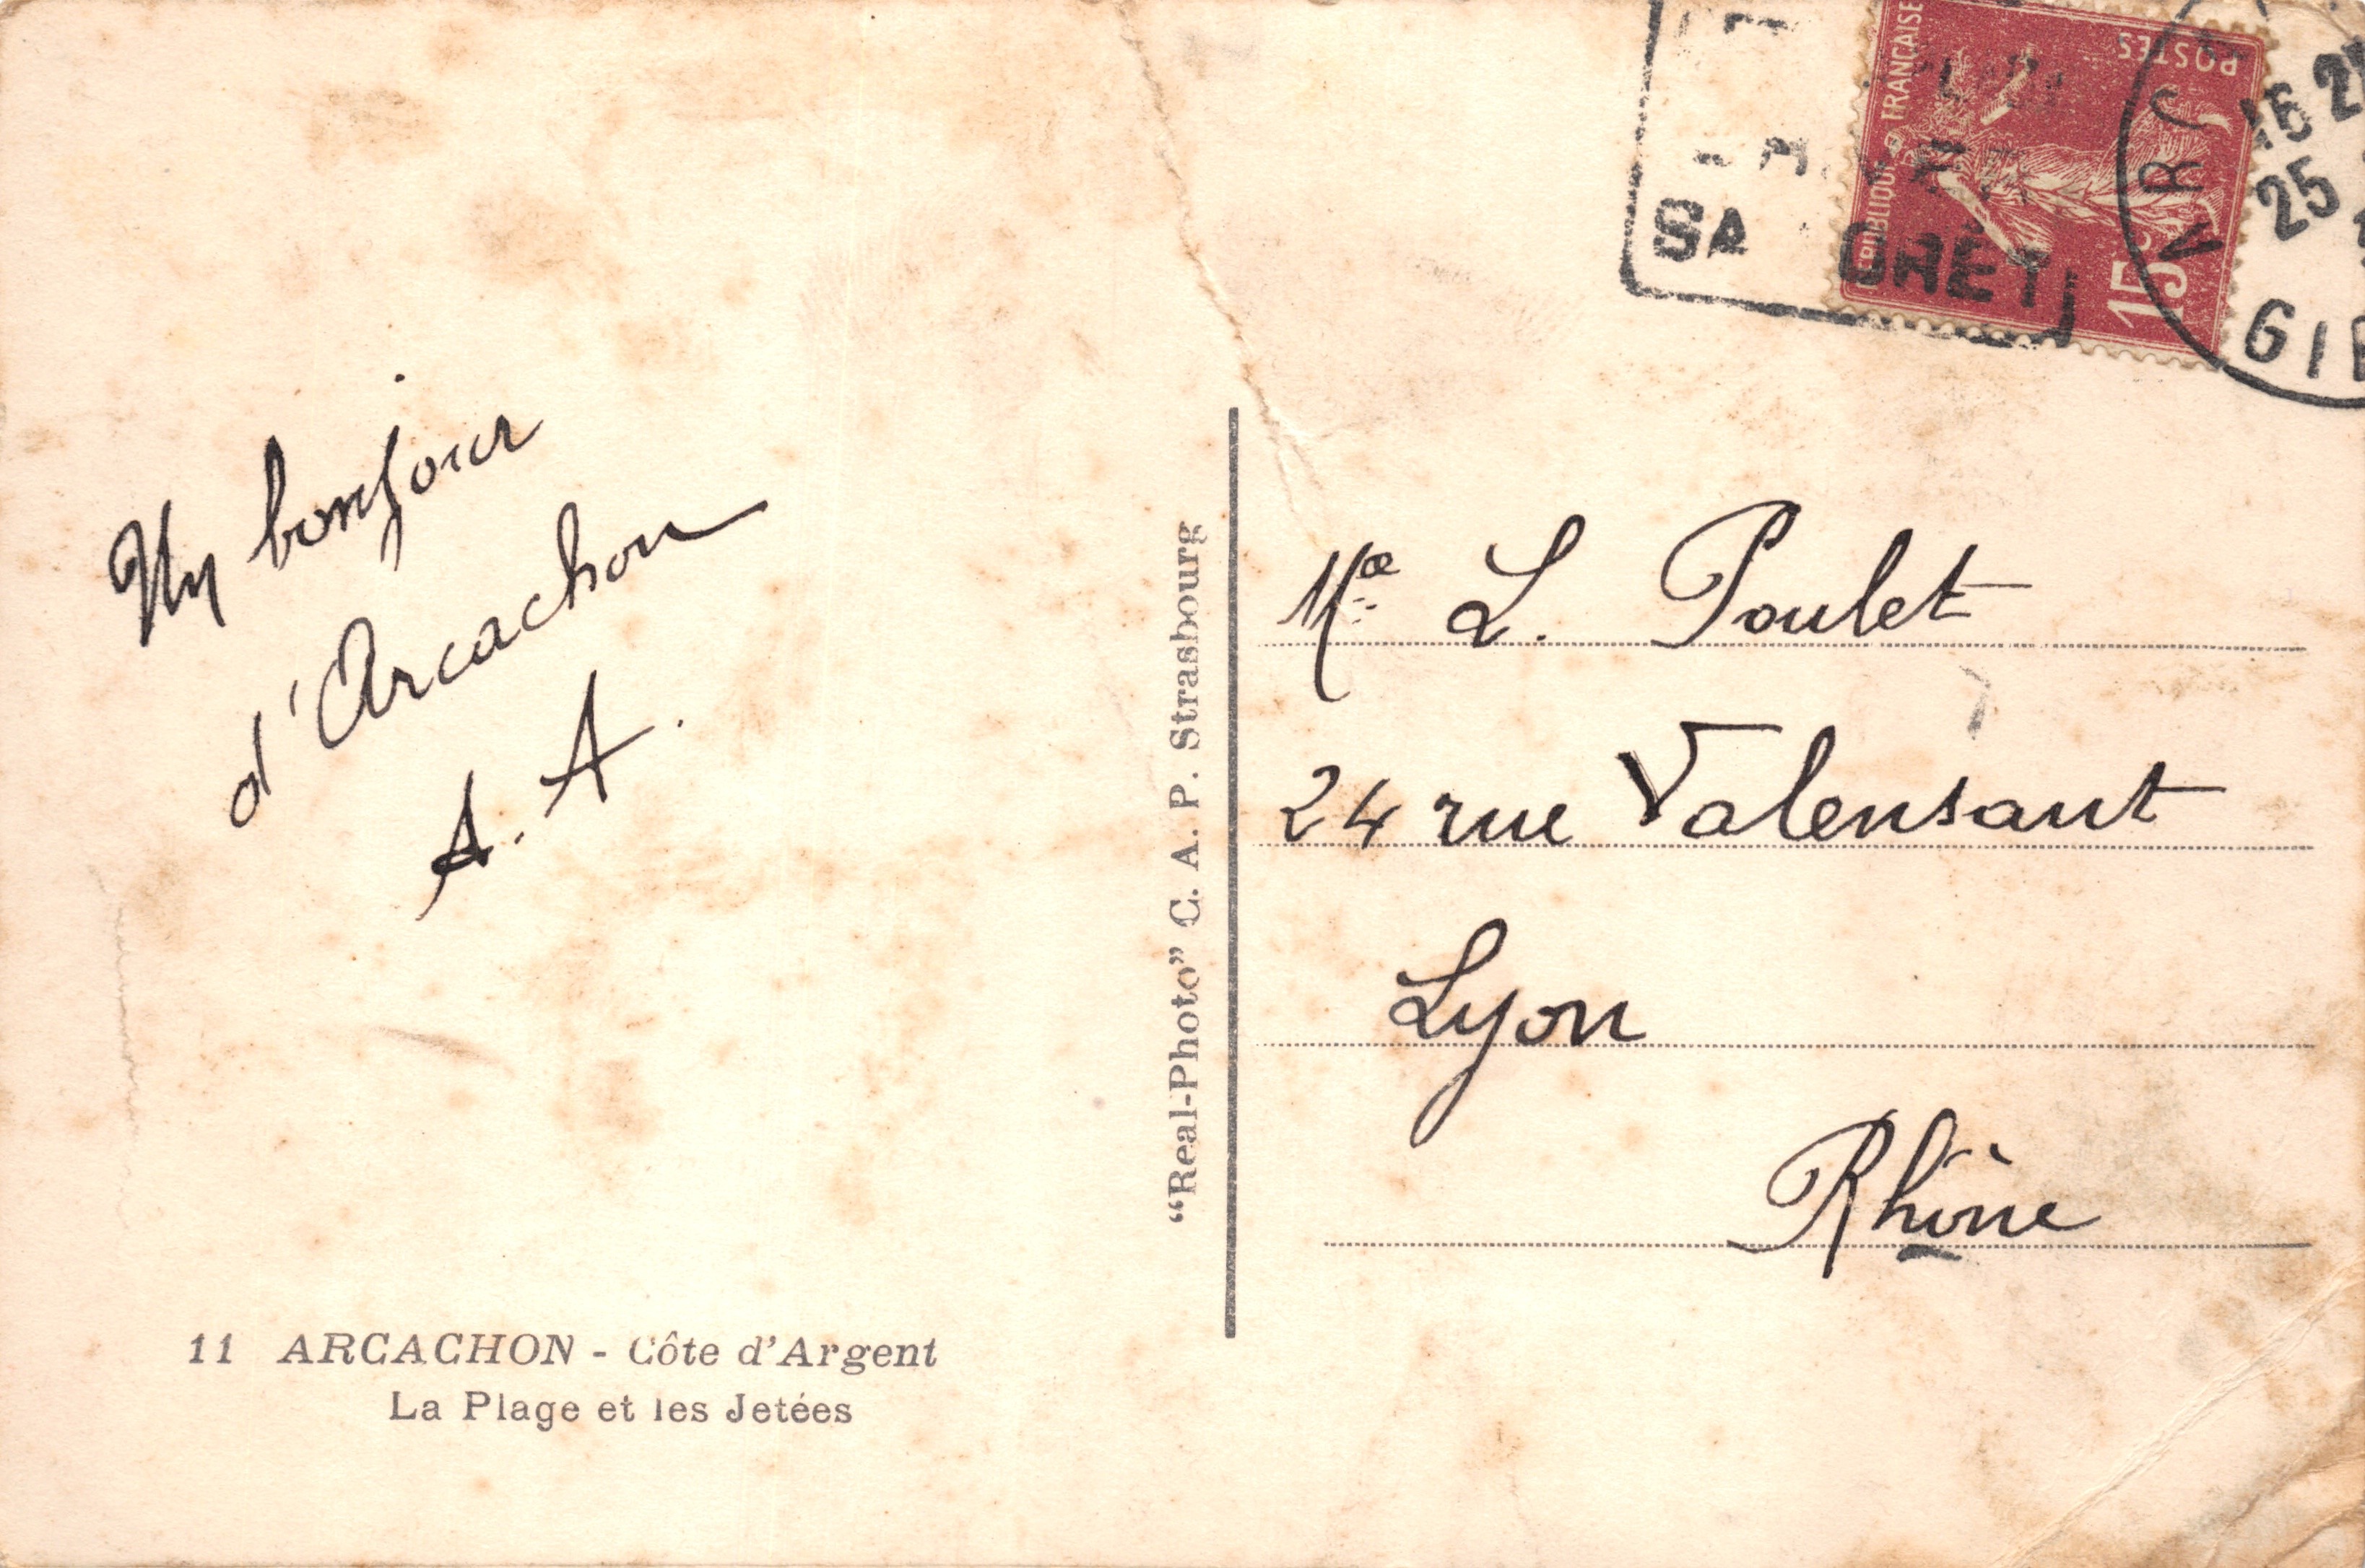 Un bonjour
d'Arcachon
A. A.
11 ARCACHON - Côte d'Argent
La Plage et les Jetées
"Real-Photo" C. A. P. Strasbourg
RÉPUBLIQUE FRANÇAISE
POSTES
15c
25
GIR
Me L. Poulet
24 rue Valensant
Lyon
Rhône